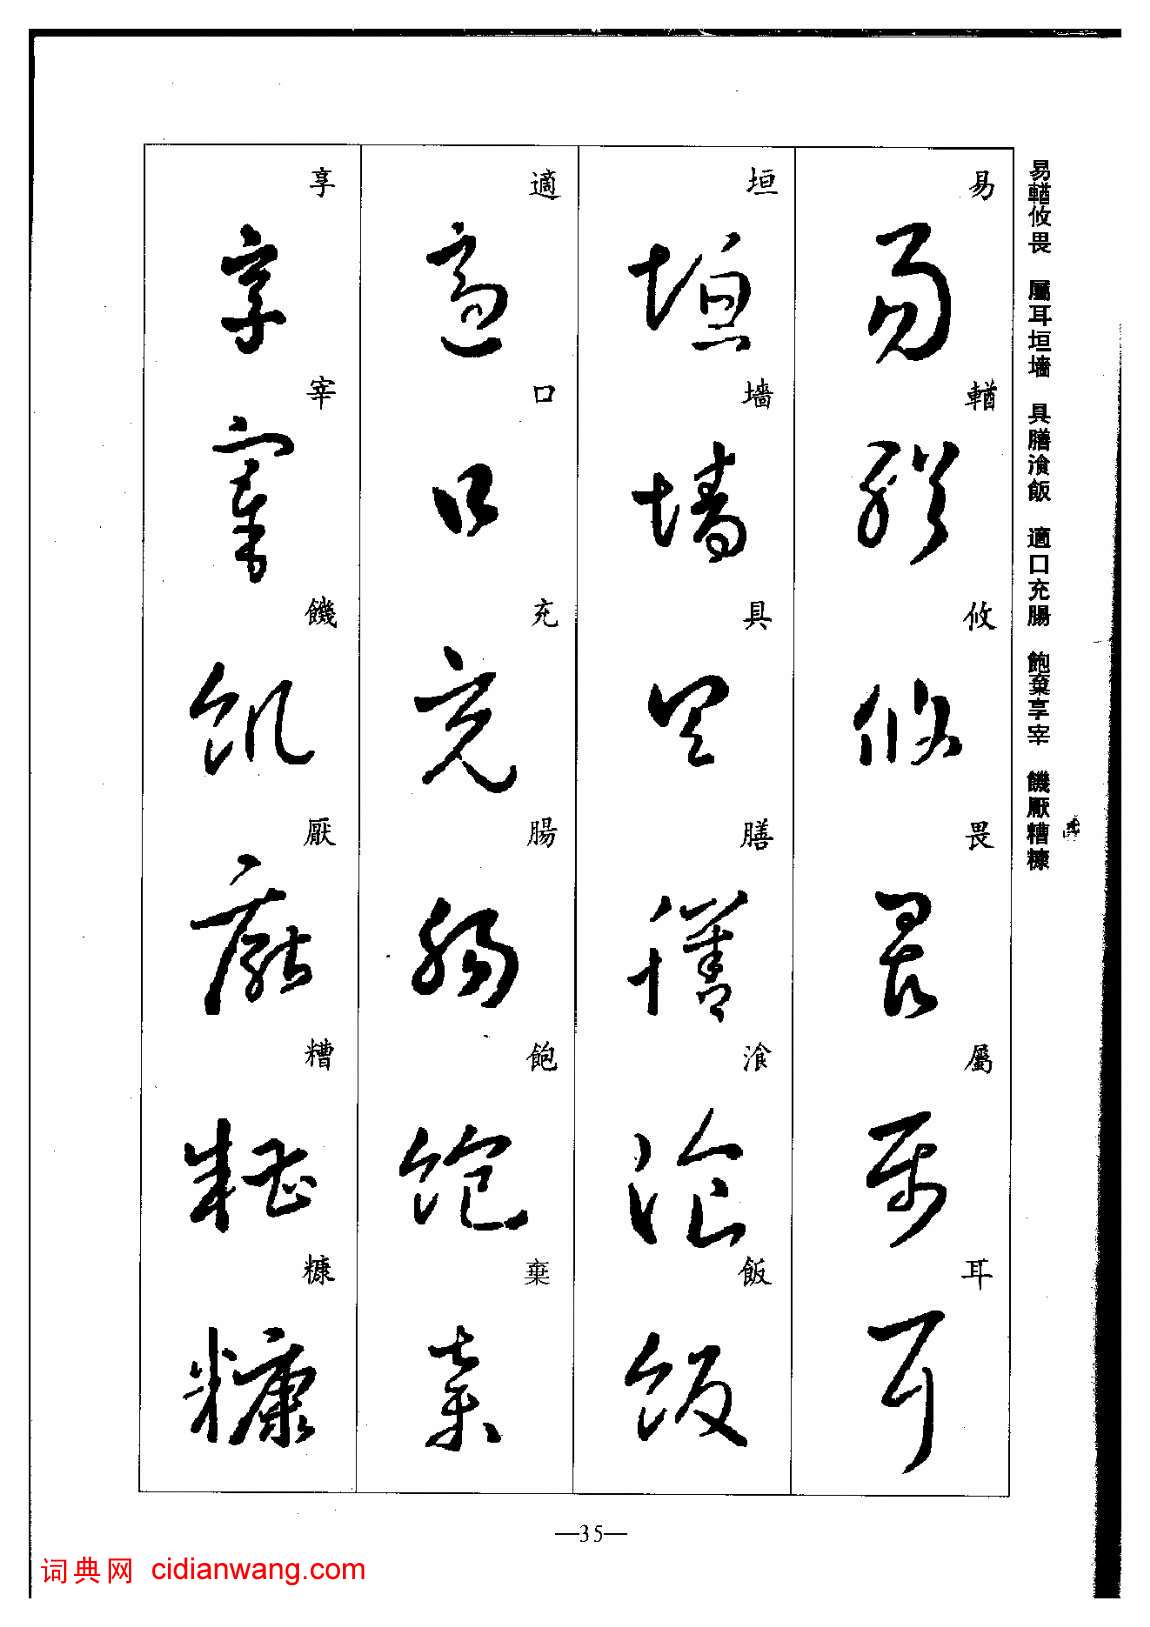 易輶攸畏 屬耳垣墻 具膳湌飯 適口充腸 飽棄享宰 饑厭糟糠
易輶攸畏屬耳
垣墻具膳湌飯
適口充腸飽棄
享宰饑厭糟糠
—35—
词典网 cidianwang.com